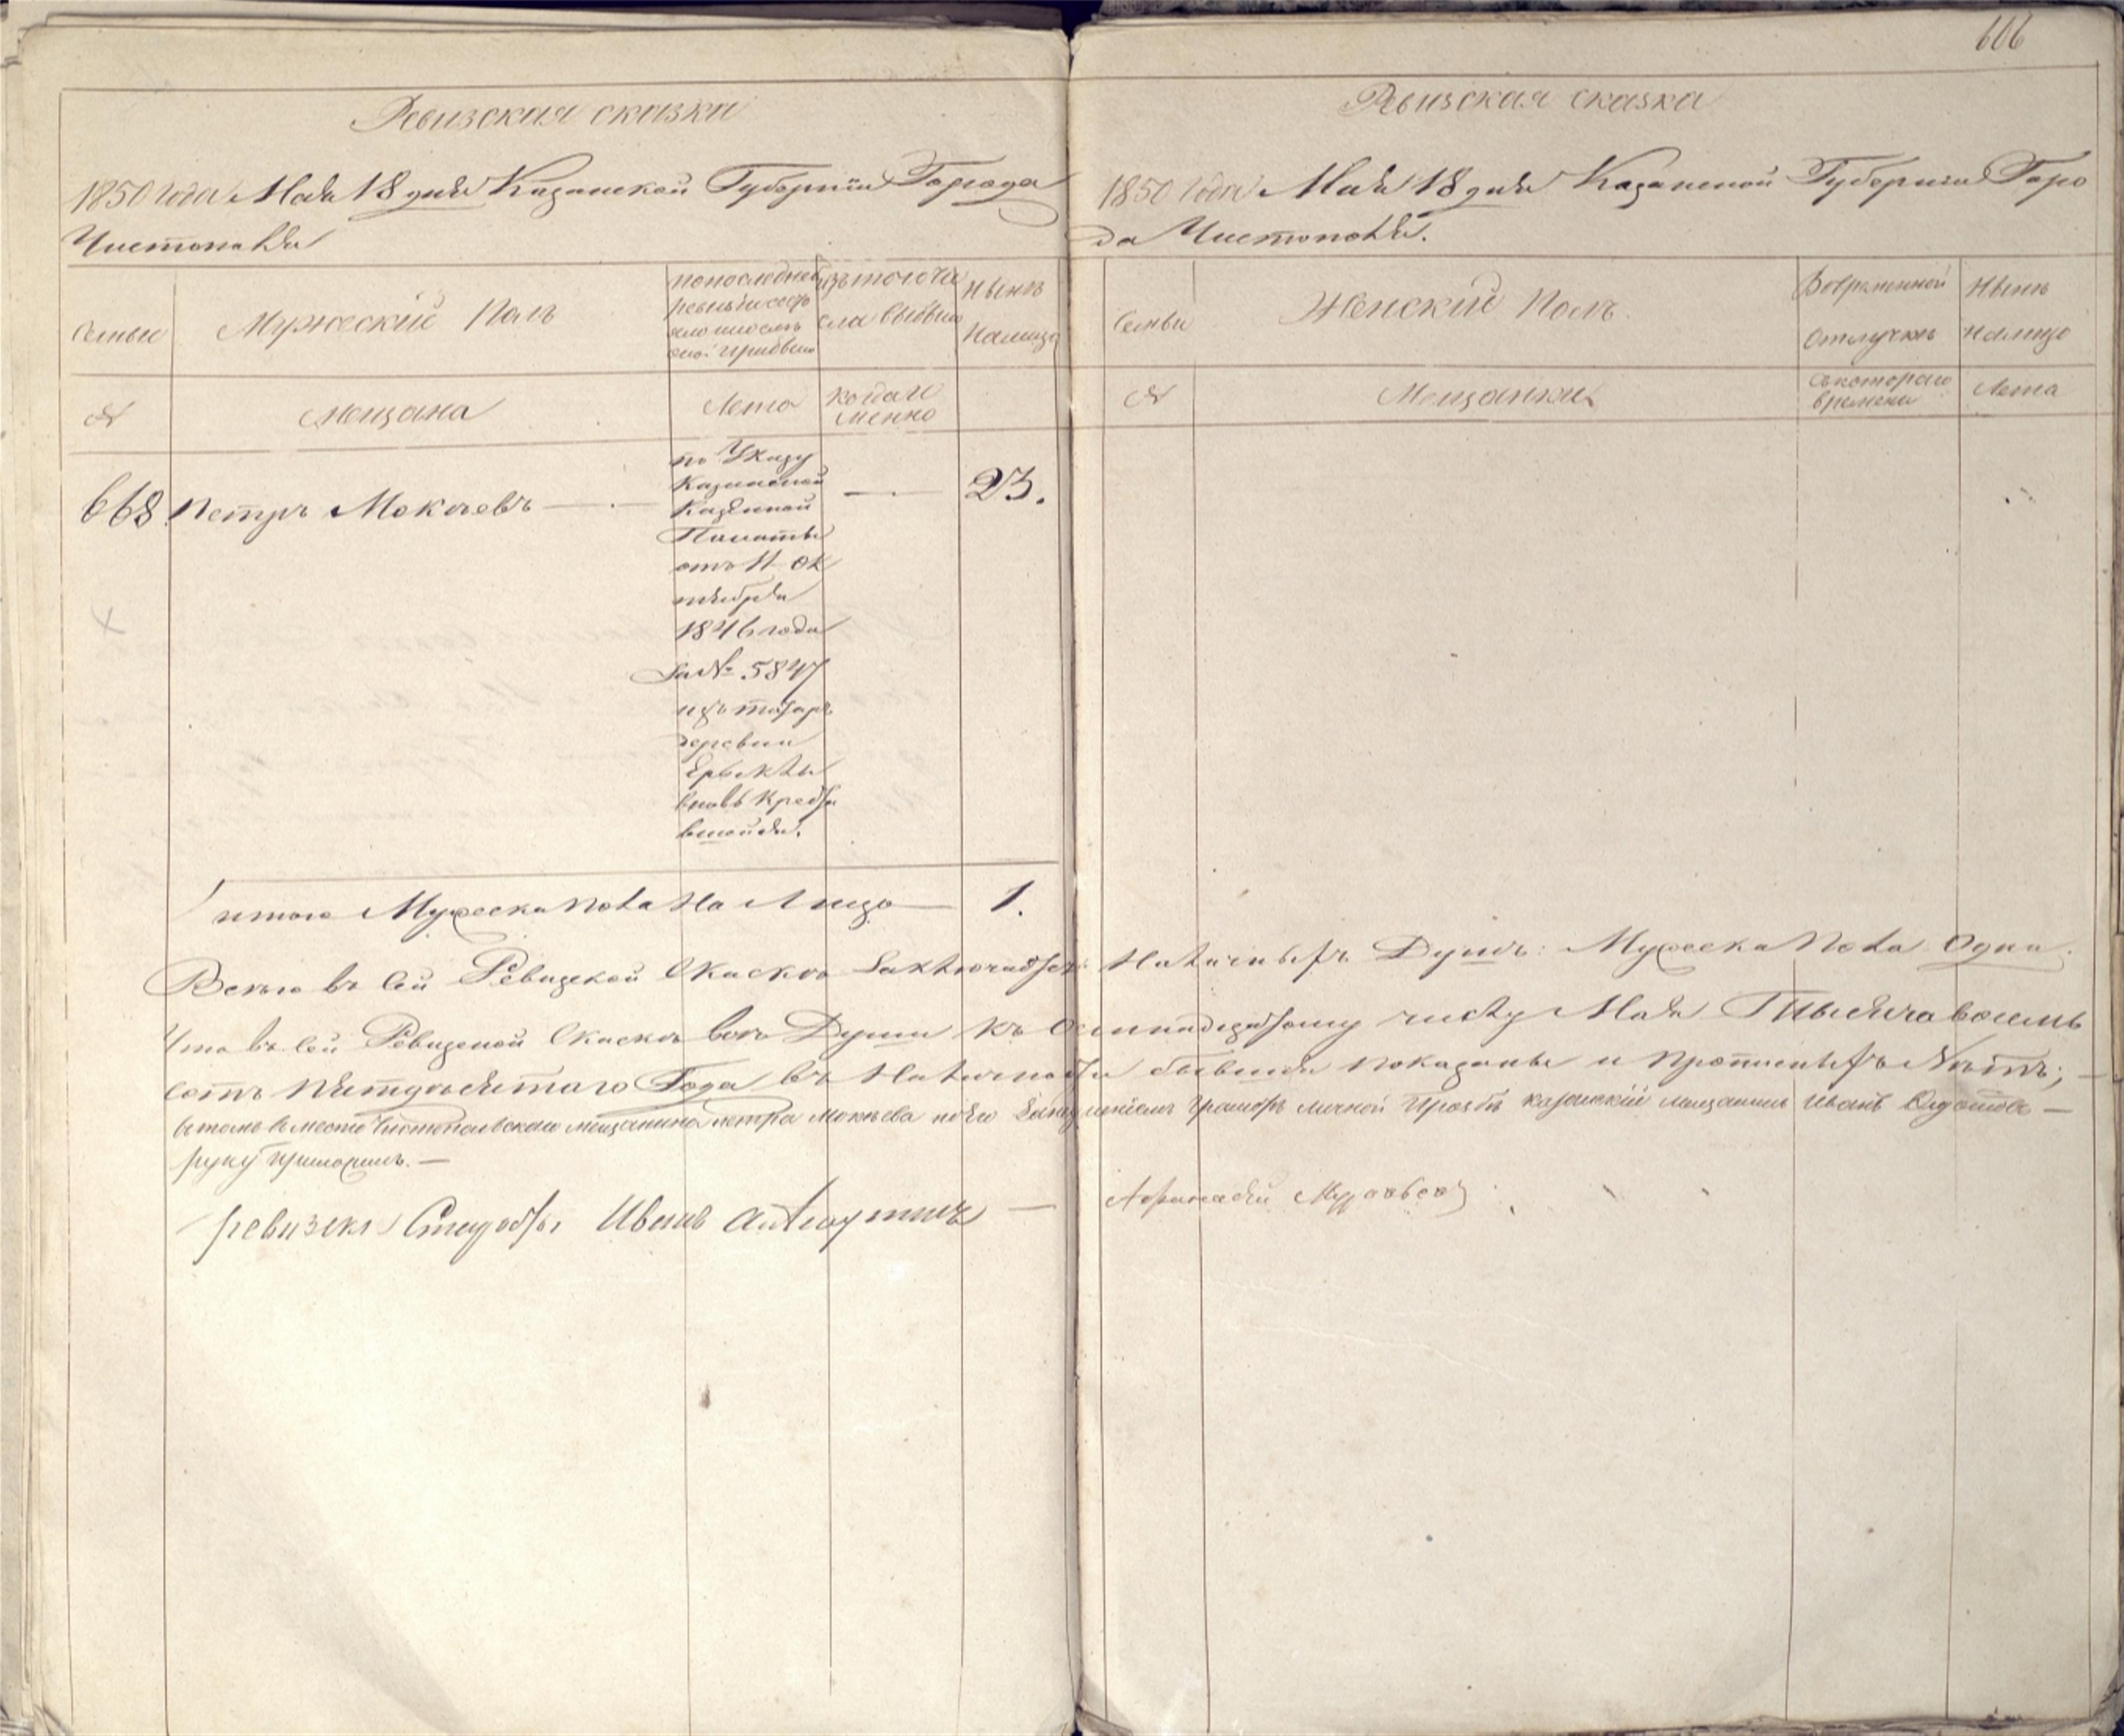 606
Ревизская сказка
1850 года Мая 18 дня Казанской Губернiи Города
Чистополя
Семьи
Мужескiй Полъ
по последней
ревизiи состо
яло и после
оной прибыло
изъ того чи
сла выбыло
Нынъ
Налицо
№
Мещана
Лета
когда и
менно
668. Петръ Мокеевъ
по Указу
Казанской
Казенной
Палаты
отъ 11 Ок
тября
1846 года
За № 5847
изъ татаръ
деревни
Ерыклы
вновь крести
вшойся.
—
23.
итого Мужеска пола На Лицо — 1.
Ревизская сказка
1850 Года Мая 18 дня Казанской Губернiи Горо
да Чистополя.
Семьи
Женский Полъ.
Вовременной
Отлучкъ
Нынъ
налицо
№
Мещанки
Съкотораго
времени
Лета
Всего въ Сей Ревизской Скаскъ Заключается Наличныхъ Душъ: Мужеска Пола Одна.
Что въ сей Ревизской Скаскъ всъ Души къ Осминадцатому числу Мая Тысяча восемь
сотъ Пятдесятаго Года въ Наличности бывшия показаны и Прописныхъ Нътъ; —
вътомъ вместо Чистопольскаго мещанина петра Мокъева по его личной прозбъ казанскiй мещанинъ Иванъ
руку приложилъ. —
ревизскл Иванъ —
Афанасей